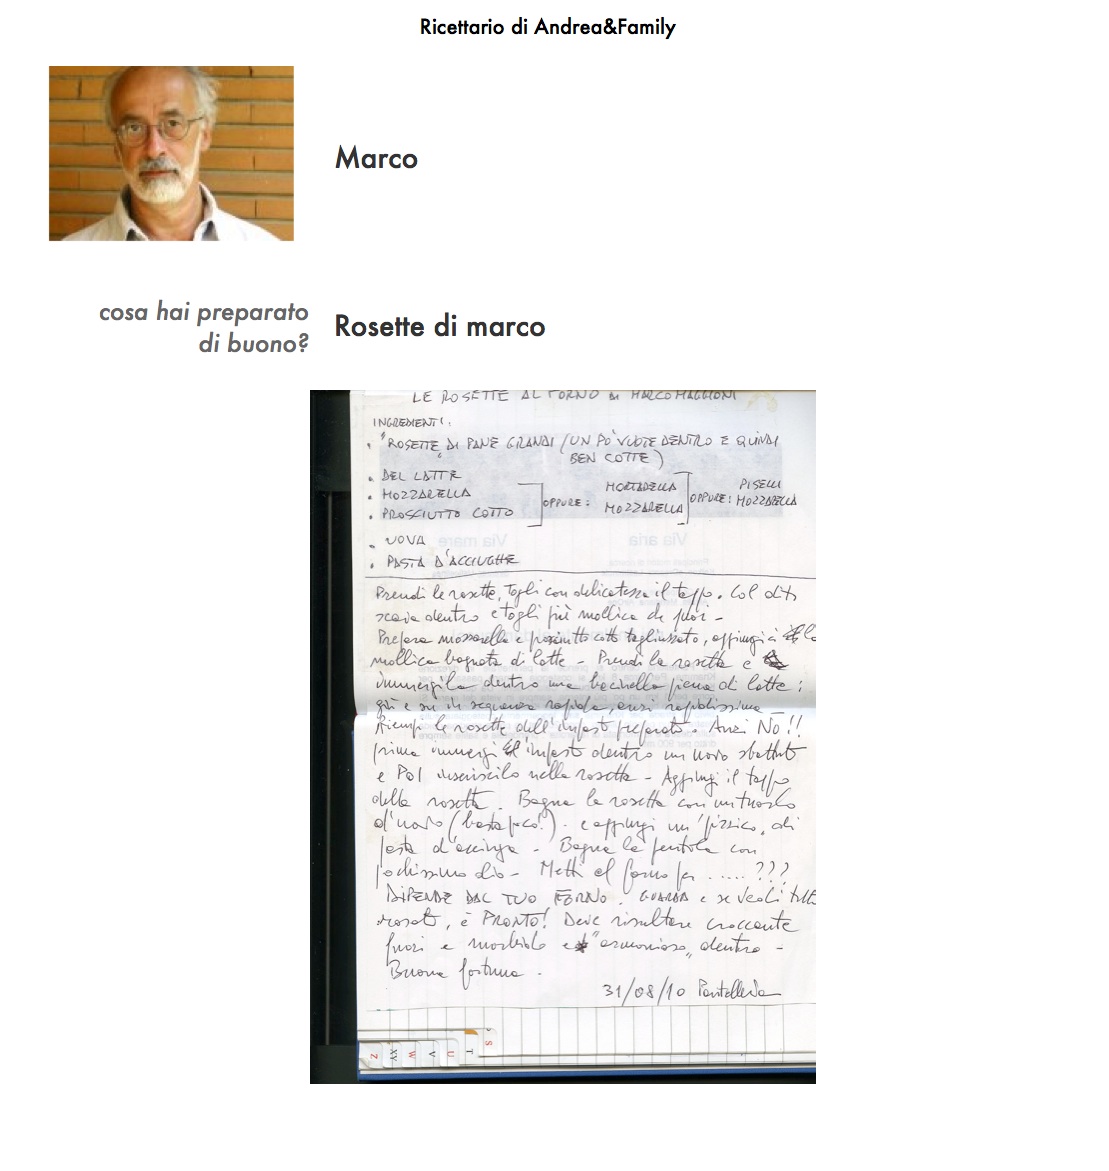 Ricettario di Andrea&Family
Marco
cosa hai preparato
di buono?
Rosette di marco
LE ROSETTE AL FORNO di MARCO MAGGIONI
INGREDIENTI:
• "ROSETTE" DI PANE GRANDI (UN PO' VUOTE DENTRO E QUINDI
BEN COTTE)
• DEL LATTE
• MOZZARELLA
• PROSCIUTTO COTTO
OPPURE:
MORTADELLA
MOZZARELLA
OPPURE:
PISELLI
MOZZARELLA
• UOVA
• PASTA D'ACCIUGHE
Prendi le rosette, togli con delicatezza il tappo. Col dito
scava dentro e togli più mollica che puoi -
Prepara mozzarella e prosciutto cotto tagliuzzato, aggiungi la
mollica bagnata di latte - Prendi la rosetta e
immergila dentro una bacinella piena di latte:
giù e su in sequenza rapida, anzi rapidissima -
Riempi le rosette dell'impasto preparato. Anzi NO!!
prima immergi l'impasto dentro un uovo sbattuto
e POI inseriscilo nella rosetta - Aggiungi il tappo
della rosetta. Bagna la rosetta con un tuorlo
d'uovo (basta poco!) - e aggiungi un "pizzico" di
pasta d'acciuga - Bagna la pentola con
pochissimo olio - Metti al forno per ..... ???
DIPENDE DAL TUO FORNO. GUARDA e se vedi tutto
rosato, è PRONTO! Deve risultare croccante
fuori e morbido e "armonioso" dentro -
Buona fortuna.
31/08/10 Pantelleria
Via mare
Via aria
S
T
U
V
W
XY
Z